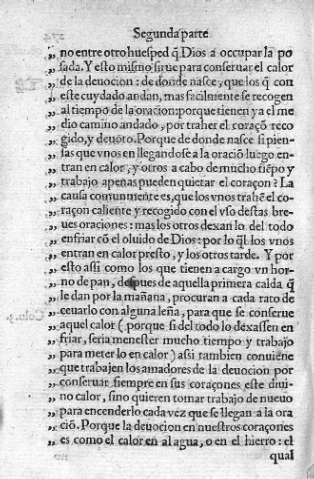 Segunda parte
„ no entre otro huesped q̃ Dios a occupar la po
„ sada. Y esto mismo sirue para conseruar el calor
„ de la deuocion: de donde nasce, que los q̃ con
„ este cuydado andan, mas facilmente se recogen
„ al tiempo de la oracion: porque tienen ya el me
„ dio camino andado, por traher el coraçõ reco
„ gido, y deuoto. Porque de donde nasce si pien-
„ sas que vnos en llegandose a la oraciõ luego en-
„ tran en calor, y otros a cabo de mucho tiẽpo y
„ trabajo apenas pueden quietar el coraçon? La
„ causa comunmente es, que los vnos trahẽ el co-
„ raçon caliente y recogido con el vso destas bre-
„ ues oraciones: mas los otros dexanlo del todo
„ enfriar cõ el oluido de Dios: por lo q̃l los vnos
„ entran en calor presto, y los otros tarde. Y por
„ esto assi como los que tienen a cargo vn hor-
„ no de pan, despues de aquella primera calda q̃
„ le dan por la mañana, procuran a cada rato de
„ ceuarlo con alguna leña, para que se conserue
„ aquel calor (porque si del todo lo dexassen en
„ friar, seria menester mucho tiempo y trabajo
„ para meterlo en calor) assi tambien conuiene
„ que trabajen los amadores de la deuocion por
„ conseruar siempre en sus coraçones este diui-
„ no calor, sino quieren tomar trabajo de nueuo
„ para encenderlo cada vez que se llegan a la ora
„ ciõ. Porque la deuocion en nuestros coraçones
„ es como el calor en al agua, o en el hierro: el
qual